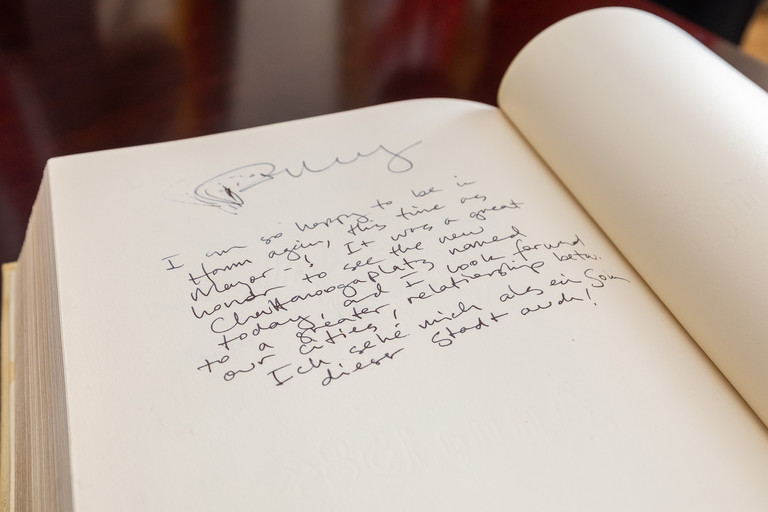 I am so happy to be in
Hamm again, this time as
Mayor-! It was a great
honor to see the new
Chattanoogaplatz named
today, and I look forward
to a greater relationship betw.
our cities,
Ich sehe mich als ein Sohn
dieser Stadt auch!